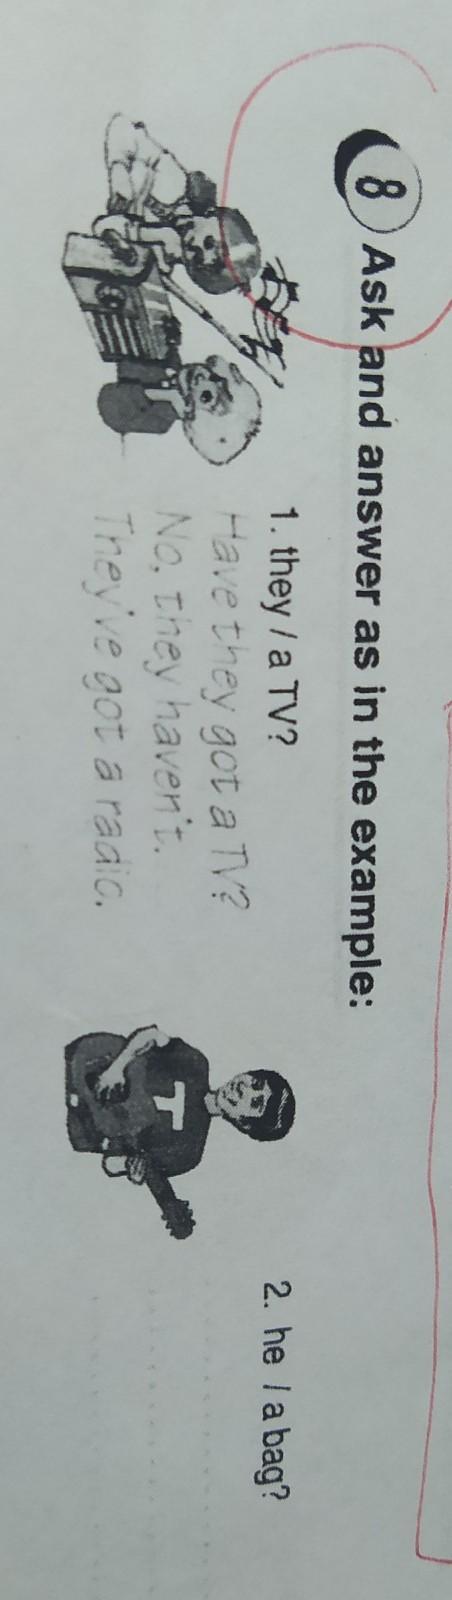 8 Ask and answer as in the example:
1. they / a TV?
Have they got a TV?
No, they haven't.
They've got a radio.
T
2. he / a bag?